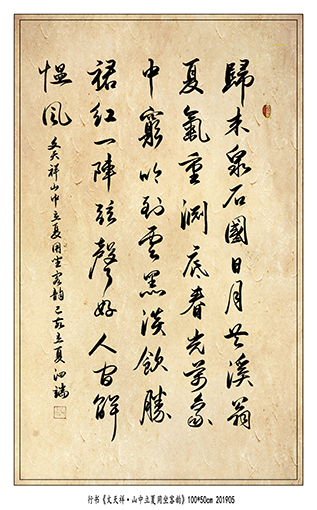 歸来泉石國日月共溪翁
夏氣重淵底春光萬象
中窮吟到雲黑淡飲勝
裙紅一陣弦聲好人間解
愠風
文天祥山中立夏用坐客韵己亥立夏
行书《文天祥·山中立夏用坐客韵》100*50cm 201905